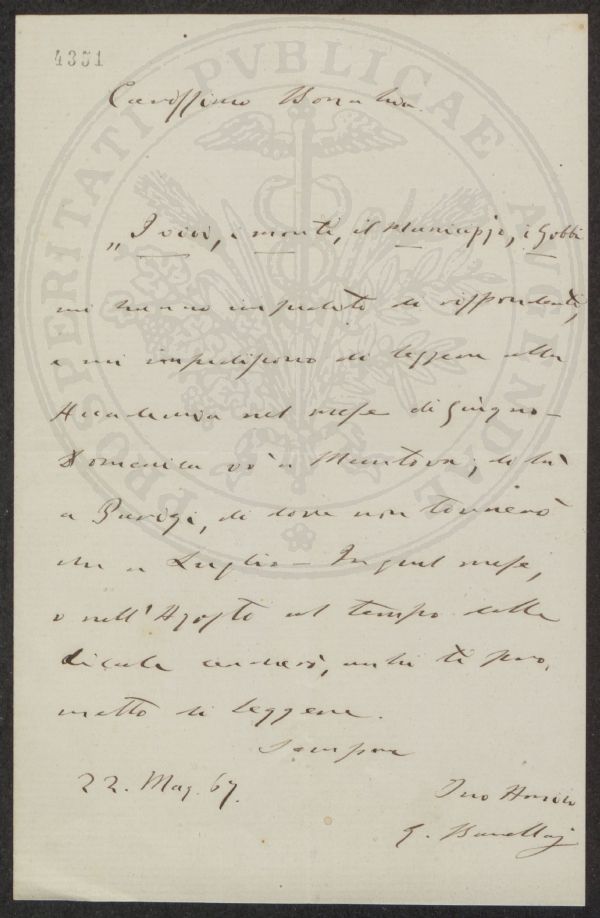 4351
PROSPERITATI PVBLICAE AVGENDAE
Carissimo
„ I vivi, i morti, il Municipj, i Gobbi
mi hanno impedito di risponderti,
e mi impediscono di leggere alla
Accademia nel mese di Giugno –
Domenica vò a Mantova; di là
a Parigi, di dove non tornerò
che a Luglio – In quel mese,
o nell'Agosto al tempo delle
cicale anderò, anzi ti pro,
metto di leggere.
Sempre
22. Mag. 67.
Tuo
G. Barellaj